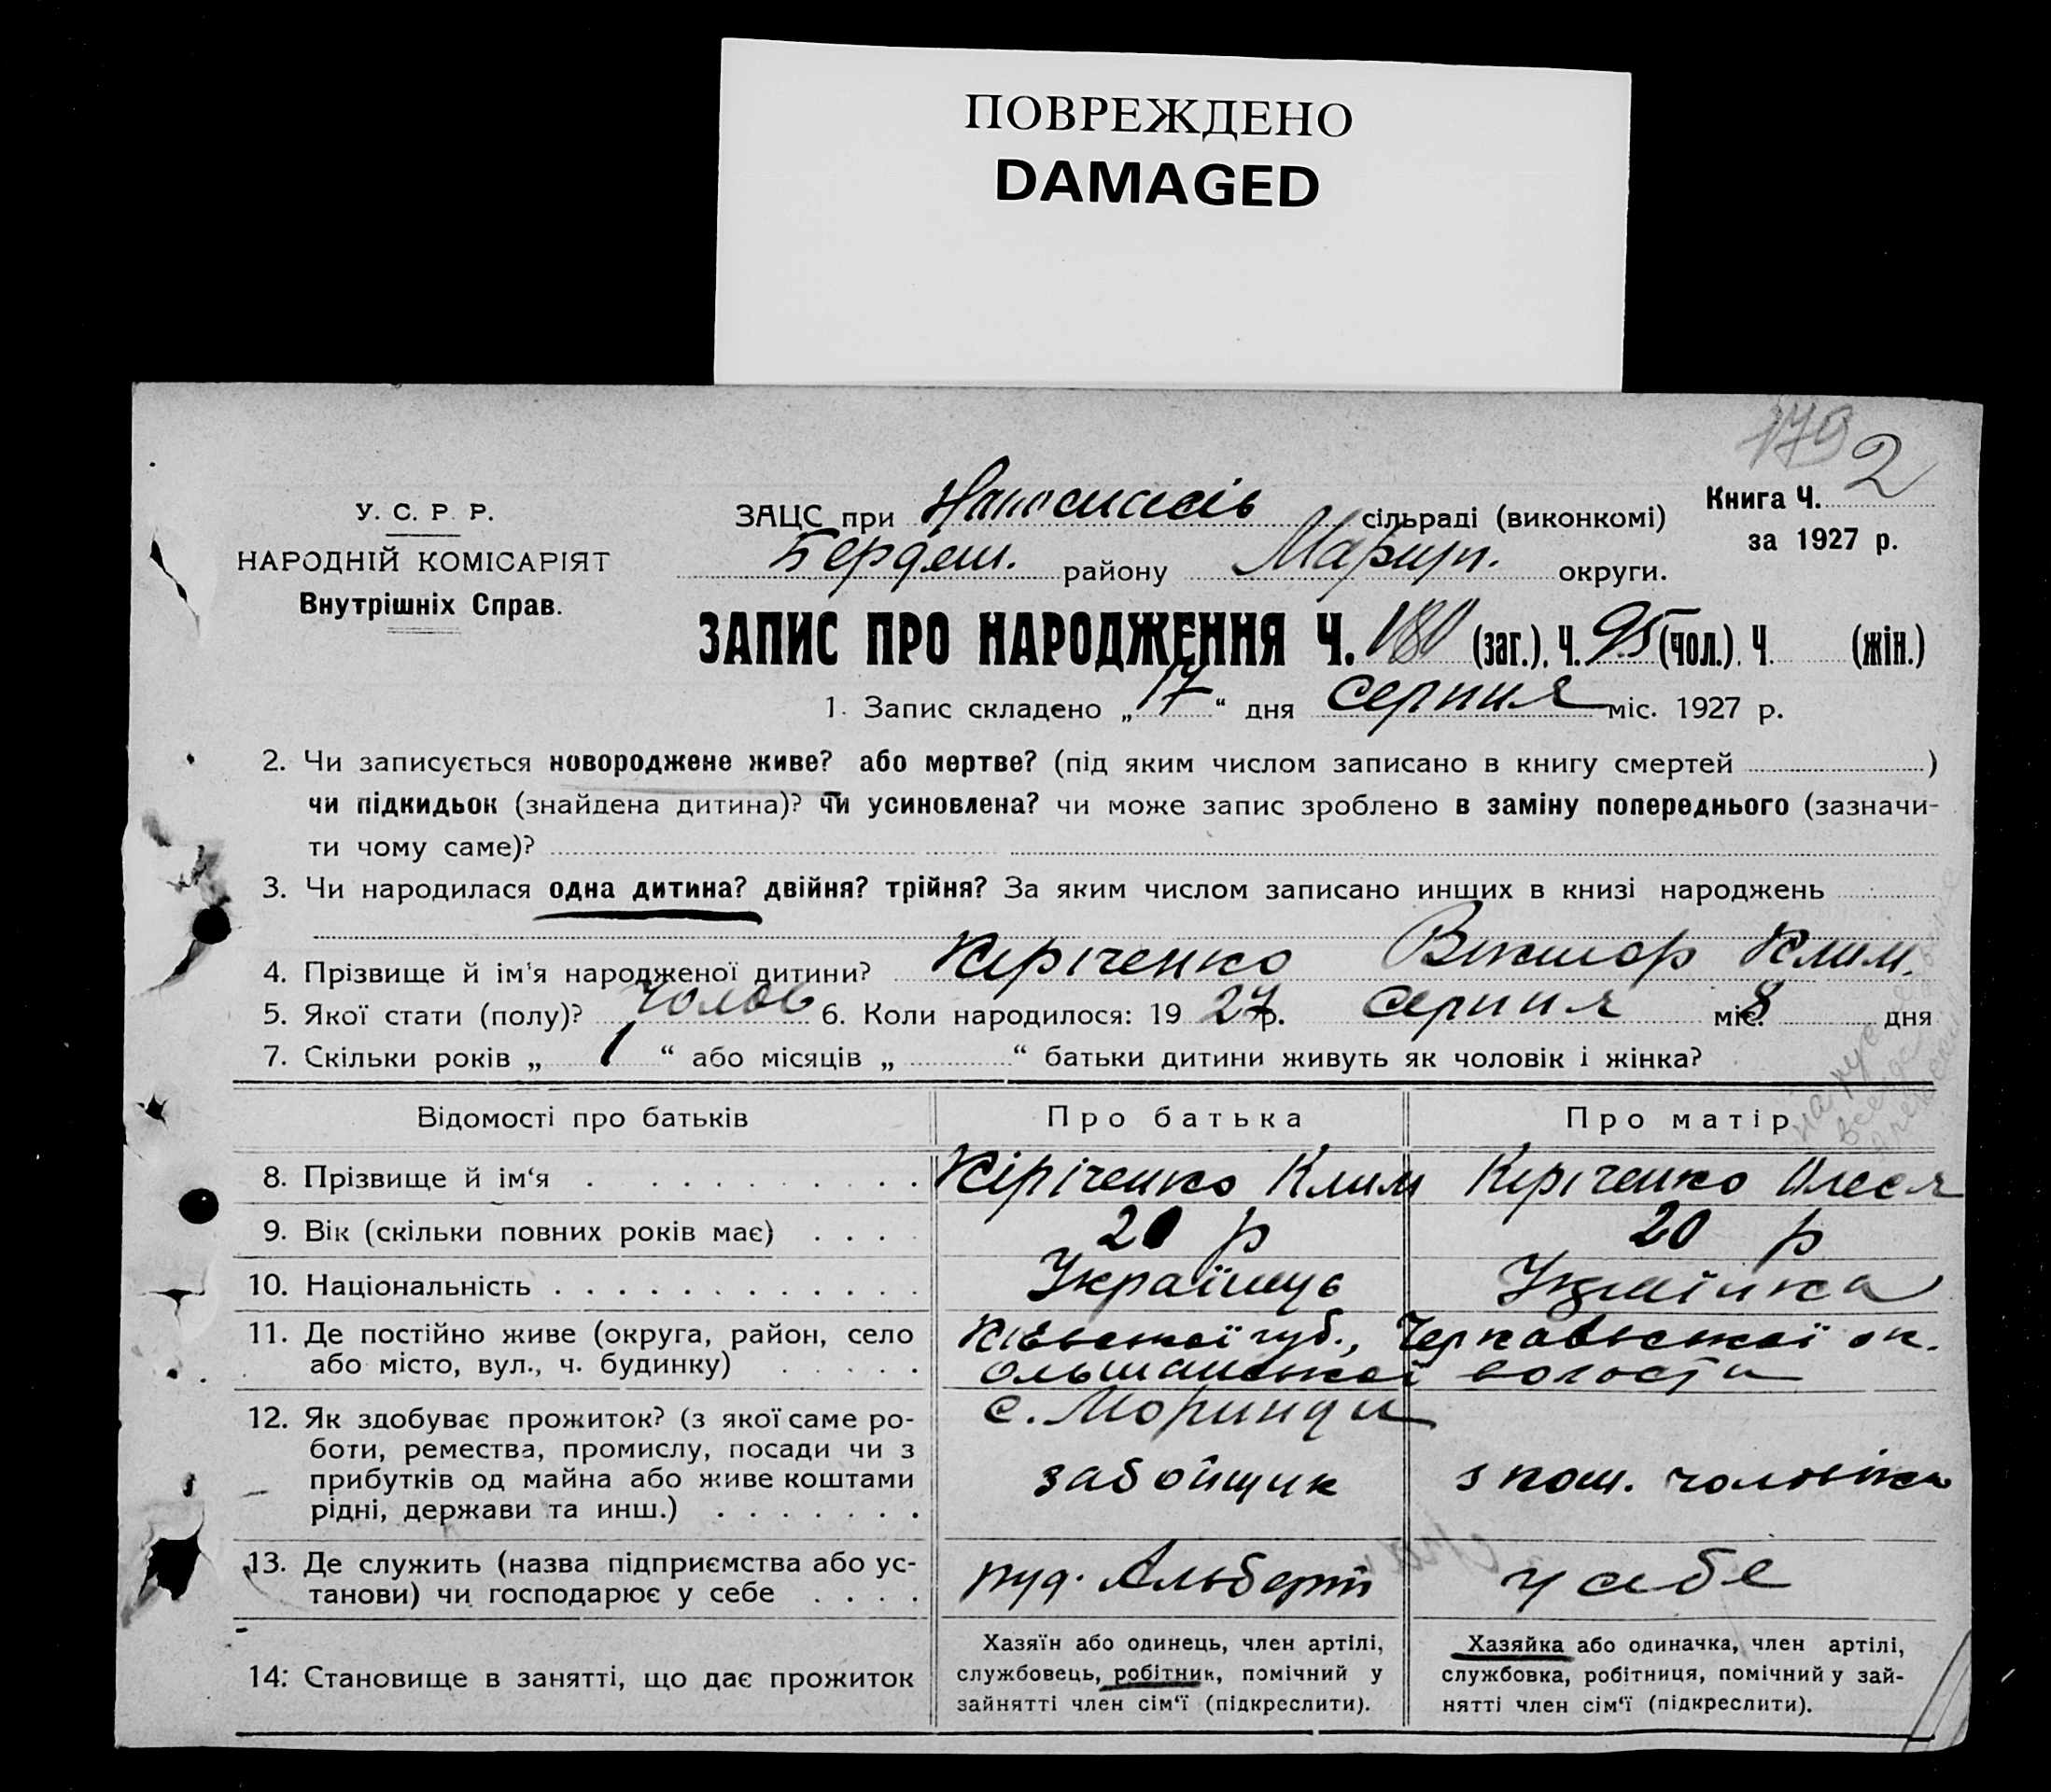 ПОВРЕЖДЕНО
DAMAGED
179
2
У. С. Р. Р.
НАРОДНІЙ КОМІСАРІЯТ
Внутрішніх Справ.
ЗАЦС при сільраді (виконкомі)
Книга Ч.
за 1927 р.
Бердян. району Маріуп. округи.
ЗАПИС ПРО НАРОДЖЕННЯ Ч. 180 (заг.). Ч. 95 (чол.). Ч. (жін.)
1. Запис складено „ 17 “ дня серпня міс. 1927 р.
2. Чи записується новороджене живе? або мертве? (під яким числом записано в книгу смертей )
чи підкидьок (знайдена дитина)? чи усиновлена? чи може запис зроблено в заміну попереднього (зазначи-
ти чому саме)?
3. Чи народилася одна дитина? двійня? трійня? За яким числом записано инших в книзі народжень
4. Прізвище й ім'я народженої дитини? Кіріченко Віктор Клим.
5. Якої стати (полу)? чолов 6. Коли народилося: 19 27 р. серпня міс. 8 дня
7. Скільки років „ 1 “ або місяців „ “ батьки дитини живуть як чоловік і жінка?
Відомості про батьків Про батька Про матір
8. Прізвище й ім‘я Кіріченко Клим Кіріченко Олеся
9. Вік (скільки повних років має) 20 р 20 р
10. Національність Українць Українка
11. Де постійно живе (округа, район, село
або місто, вул., ч. будинку)
Ківської губ., Черкавської ок.
Ольшанської волости
с. Моринци
12. Як здобуває прожиток? (з якої саме ро-
боти, ремества, промислу, посади чи з
прибутків од майна або живе коштами
рідні, держави та инш.)
забойщик з кош. чоловіка
13. Де служить (назва підприємства або ус-
танови) чи господарює у себе
руд. Альберт у себе
14. Становище в занятті, що дає прожиток
Хазяїн або одинець, член артілі,
службовець, робітник, помічний у
зайнятті член сім‘ї (підкреслити).
Хазяйка або одиначка, член артілі,
службовка, робітниця, помічний у зай-
нятті член сім‘ї (підкреслити).